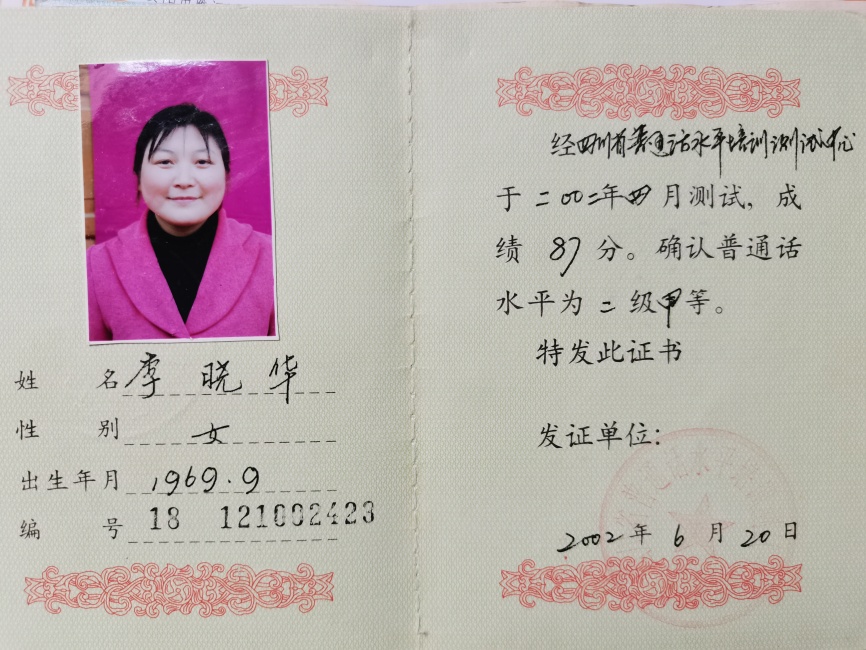 姓名 李晓华
性别 女
出生年月 1969.9
编号 18 121002423
经四川省普通话水平培训测试中心
于二00二年四月测试，成
绩 87 分。确认普通话
水平为二级甲等。
特发此证书
发证单位：
2002年6月20日